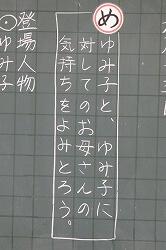 め
ゆみ子と、ゆみ子に
対してのお母さんの
気持ちをよみとろう。
登場人物
ゆみ子